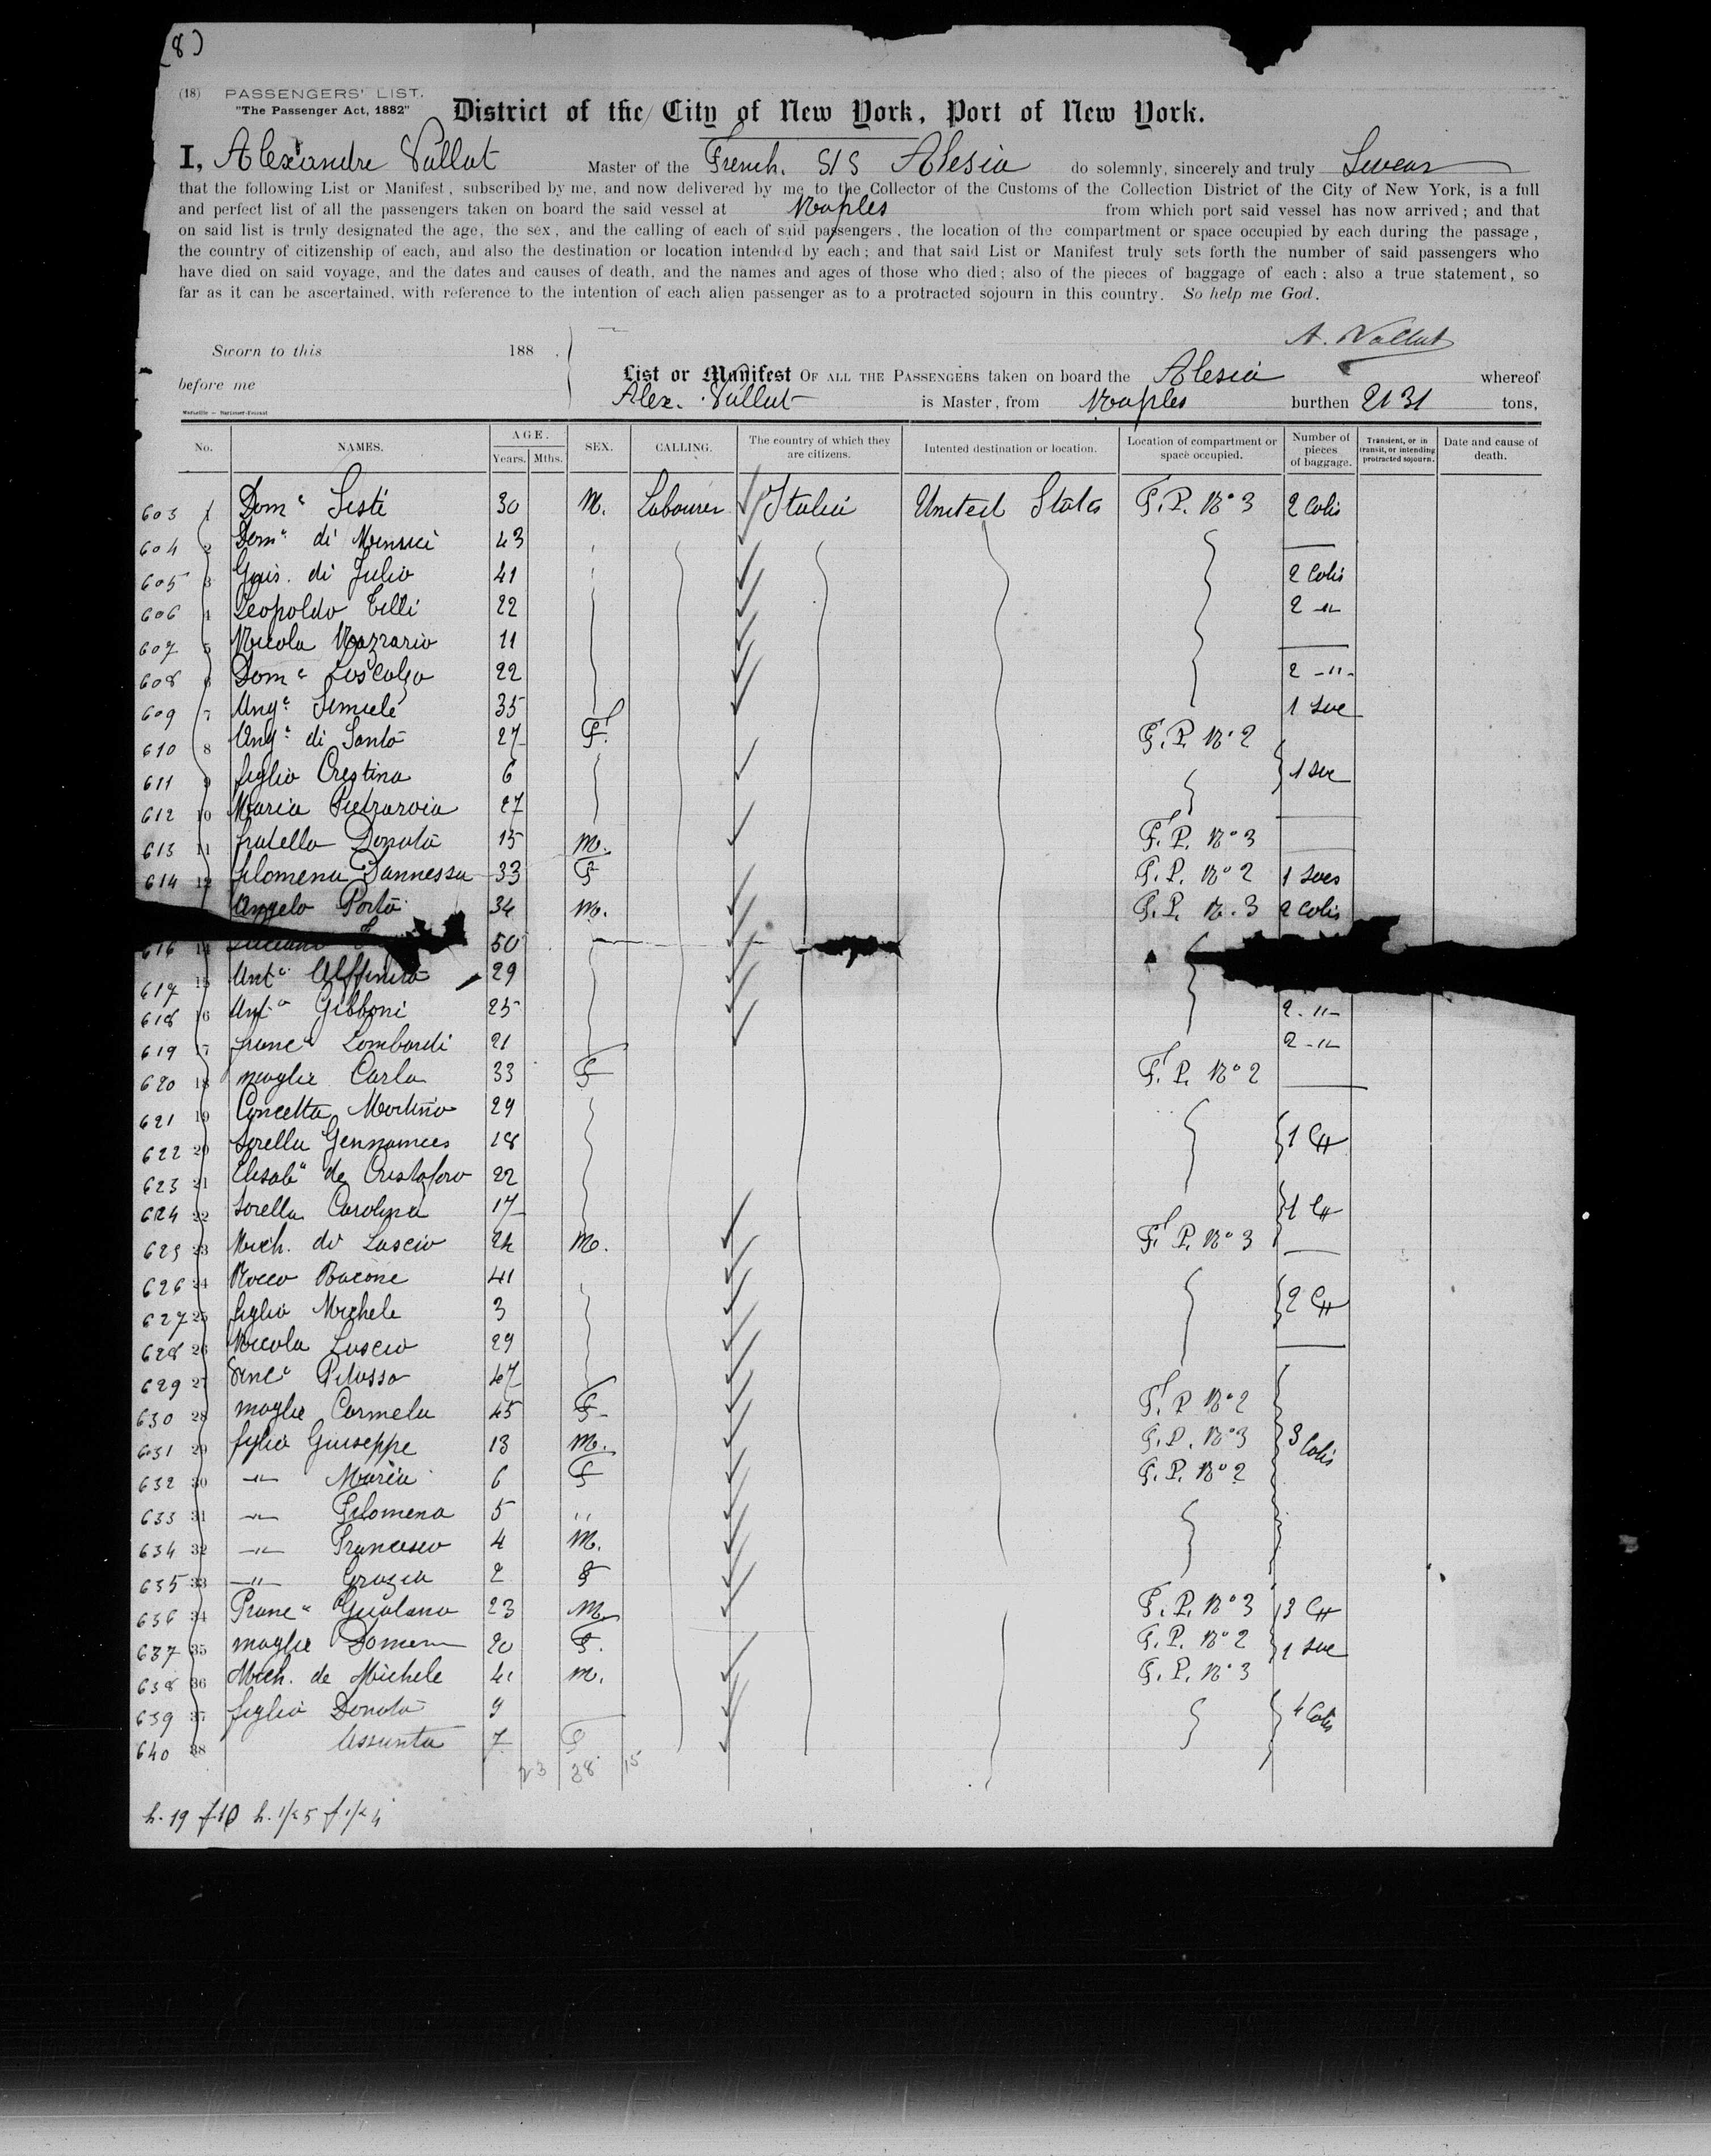 (8)
(18) PASSENGERS' LIST.
"The Passenger Act, 1882" District of the City of New York, Port of New York.
I, Alexandre Vallat Master of the French. S/S Alesia do solemnly, sincerely and truly Swear
that the following List or Manifest, subscribed by me, and now delivered by me to the Collector of the Customs of the Collection District of the City of New York, is a full
and perfect list of all the passengers taken on board the said vessel at Naples from which port said vessel has now arrived; and that
on said list is truly designated the age, the sex, and the calling of each of said passengers, the location of the compartment or space occupied by each during the passage,
the country of citizenship of each, and also the destination or location intended by each; and that said List or Manifest truly sets forth the number of said passengers who
have died on said voyage, and the dates and causes of death, and the names and ages of those who died; also of the pieces of baggage of each; also a true statement, so
far as it can be ascertained, with reference to the intention of each alien passenger as to a protracted sojourn in this country. So help me God.
A. Vallat
Sworn to this 188 .
before me List or Manifest OF ALL THE PASSENGERS taken on board the Alesia whereof
Alex. Vallat is Master, from Naples burthen 2131 tons,
No. NAMES. AGE. Years. Mths. SEX. CALLING. The country of which they are citizens. Intented destination or location. Location of compartment or space occupied. Number of pieces of baggage. Transient, or in transit, or intending protracted sojourn. Date and cause of death.
603 1 Domco Sesti 30 M. Labourer Italia United States F. P. No 3 2 Colis
604 2 43
605 3 Gius. di Julio 41 2 Colis
606 4 Leopoldo Tilli 22 2 -"-
607 5 Nicola Nazzario 11
608 6 Domco Loscalzo 22 2 -"-
609 7 Ango Semiele 35 1 sac
610 8 Anga di Santo 27 F. F. P. No 2
611 9 figlia Crestina 6 1 sac
612 10 Maria 27
613 11 fratello Donato 15 M. F. P. No 3
614 12 filomena Dannessa 33 F F. P. No 2 1 sacs
Angelo Porto 34 M. F. P. No 3 2 Colis
616 14 50
617 15 Anto 29
618 16 Anto Gibboni 25 2 -"-
619 17 franco Lombardi 21 2 -"-
620 18 moglie Carla 33 F F. P. No 2
621 19 Concetta Martino 29
622 20 sorella 18 1 C
623 21 Elisaba de Cristoforo 22
624 22 sorella Carolina 17 1 C
625 23 Mich. di Luscio 24 M. F. P. No 3
626 24 Rocco Bacone 41
627 25 figlio Michele 3 2 C
628 26 Nicola Luscio 29
629 27 Vinco Pelusso 47
630 28 moglie Carmela 45 F F. P. No 2
631 29 figlio Giuseppe 13 M. F. P. No 3 3 Colis
632 30 -"- Maria 6 F F. P. No 2
633 31 -"- Filomena 5 "
634 32 -"- Francesco 4 M.
635 33 -"- Grazia 2 F
636 34 Franco Gualano 23 M. F. P. No 3 3 C
637 35 moglie Domen 20 F. F. P. No 2 1 sac
638 36 Mich. de Michele 41 M. F. P. No 3
639 37 figlio Donato 9 4 Colis
640 38 Assunta 7 F
23 38 15
h. 19 f 10 h. 1/2 5 f 1/2 4